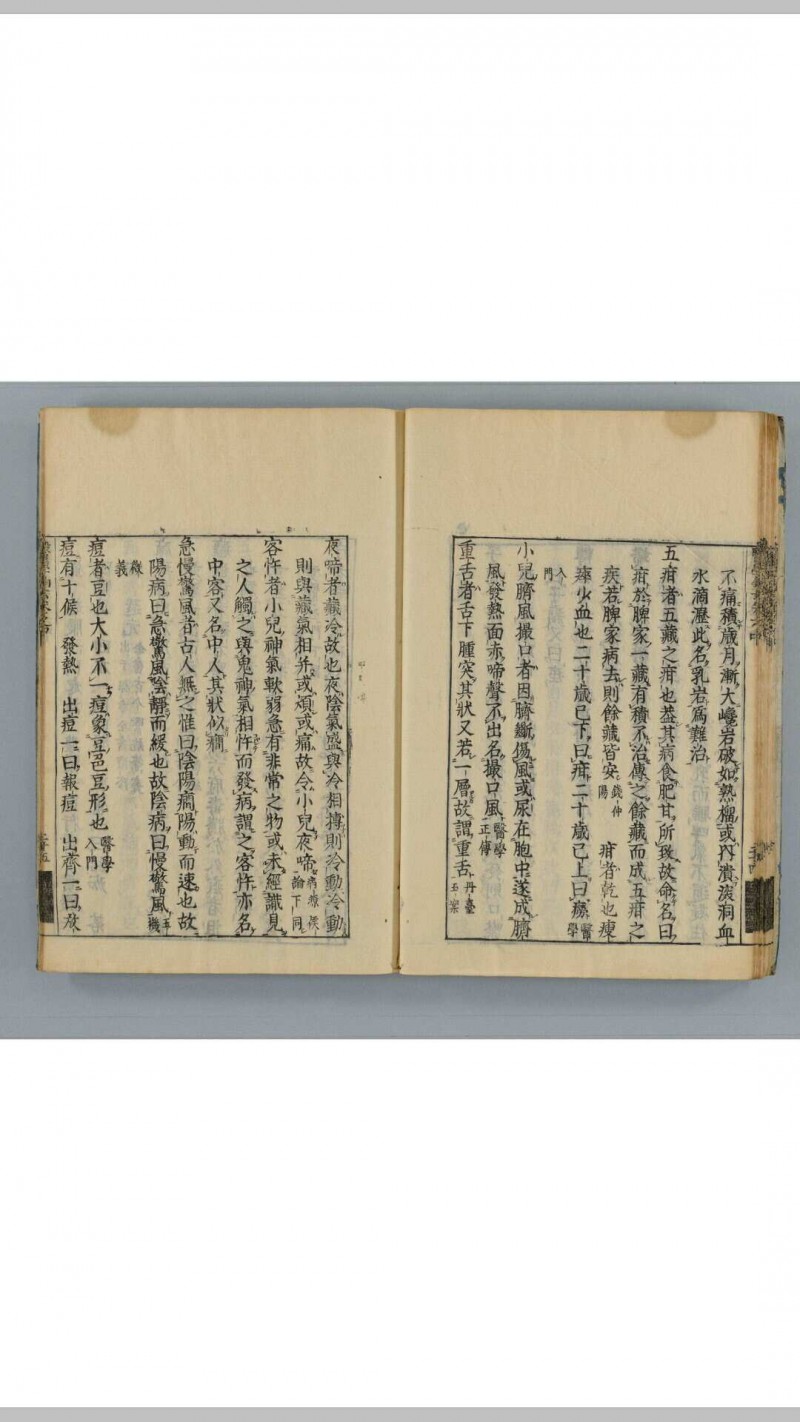 不痛積歲月漸大巉岩破如熟榴或内潰深洞血
水滴瀝此名乳岩爲難治
五疳者五藏之疳也蓋其病食肥甘所致故命名曰
疳於脾家一藏有積不治傳之餘藏而成五疳之
疾若脾家病去則餘藏皆安 錢仲陽 疳者乾也瘦
瘁少血也二十歲已下曰疳二十歲已上曰癆 醫學
入門
小兒臍風撮口者因臍斷傷風或尿在胞中遂成臍
風發熱面赤啼聲不出名撮口風 醫學正傳
重舌者舌下腫突其狀又若一層故謂重舌 丹臺玉案
夜啼者藏冷故也夜陰氣盛與冷相搏則冷動冷動
則與藏氣相并或煩或痛故令小兒夜啼 病源候論下同
客忤者小兒神氣軟弱忽有非常之物或未經識見
之人觸之與鬼神氣相忤而發病謂之客忤亦名
中客又名中人其狀似癇
急慢驚風昔古人無之惟曰陰陽癇陽動而速也故
陽病曰急驚風陰靜而緩也故陰病曰慢驚風 玉機
微義
痘者豆也大小不一痘象豆邑豆形也 醫學入門
痘有十候 發熱 出痘一曰報痘 出齊一曰放